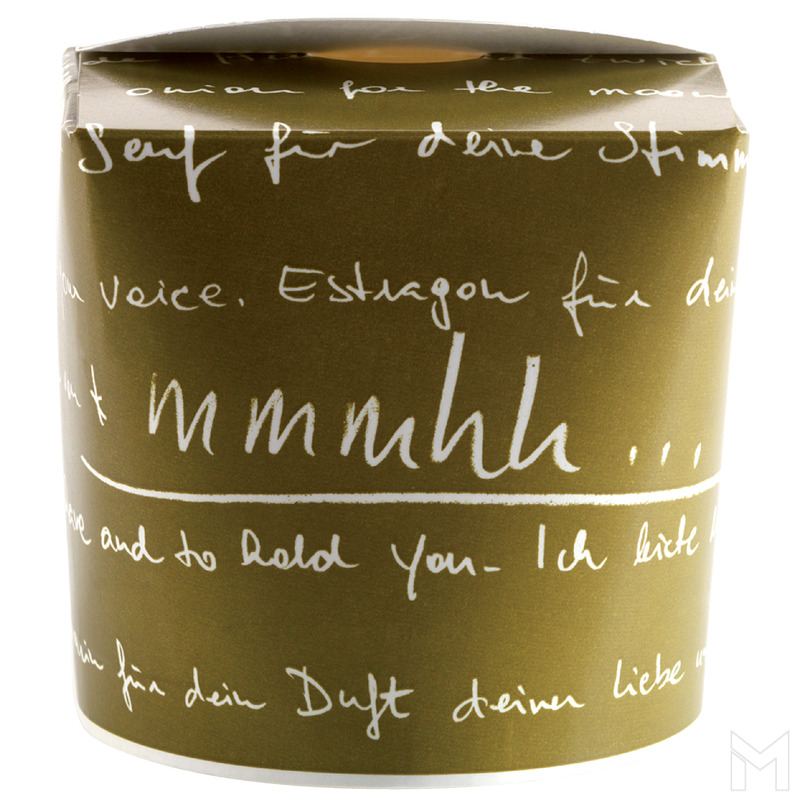 onion for the moon
Senf für deine Stimm
voice. Estragon für dein
mmmhh...
and to hold you - Ich
für dein Duft deiner Liebe
M